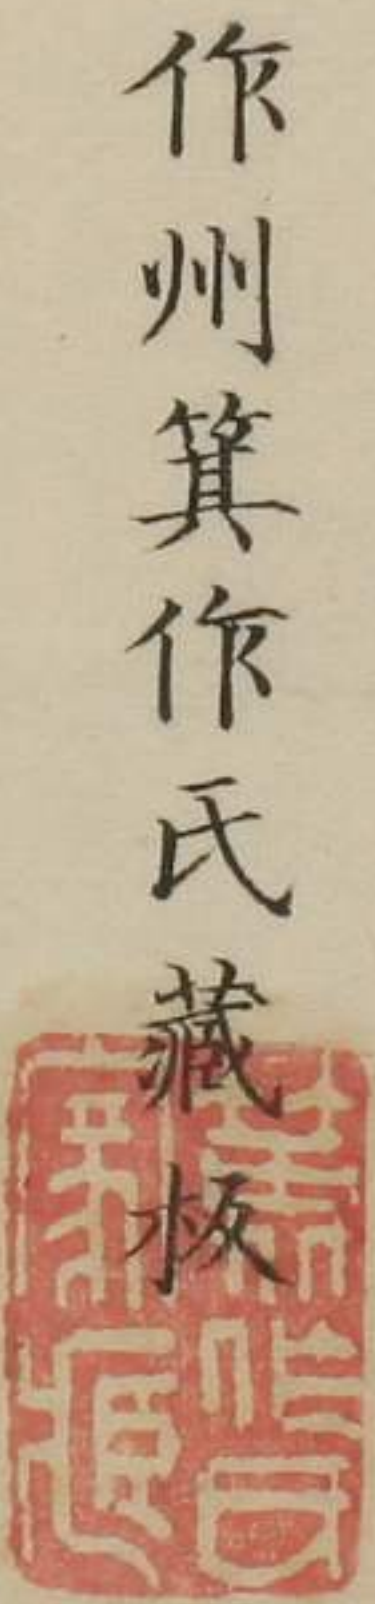 作州箕作氏藏板